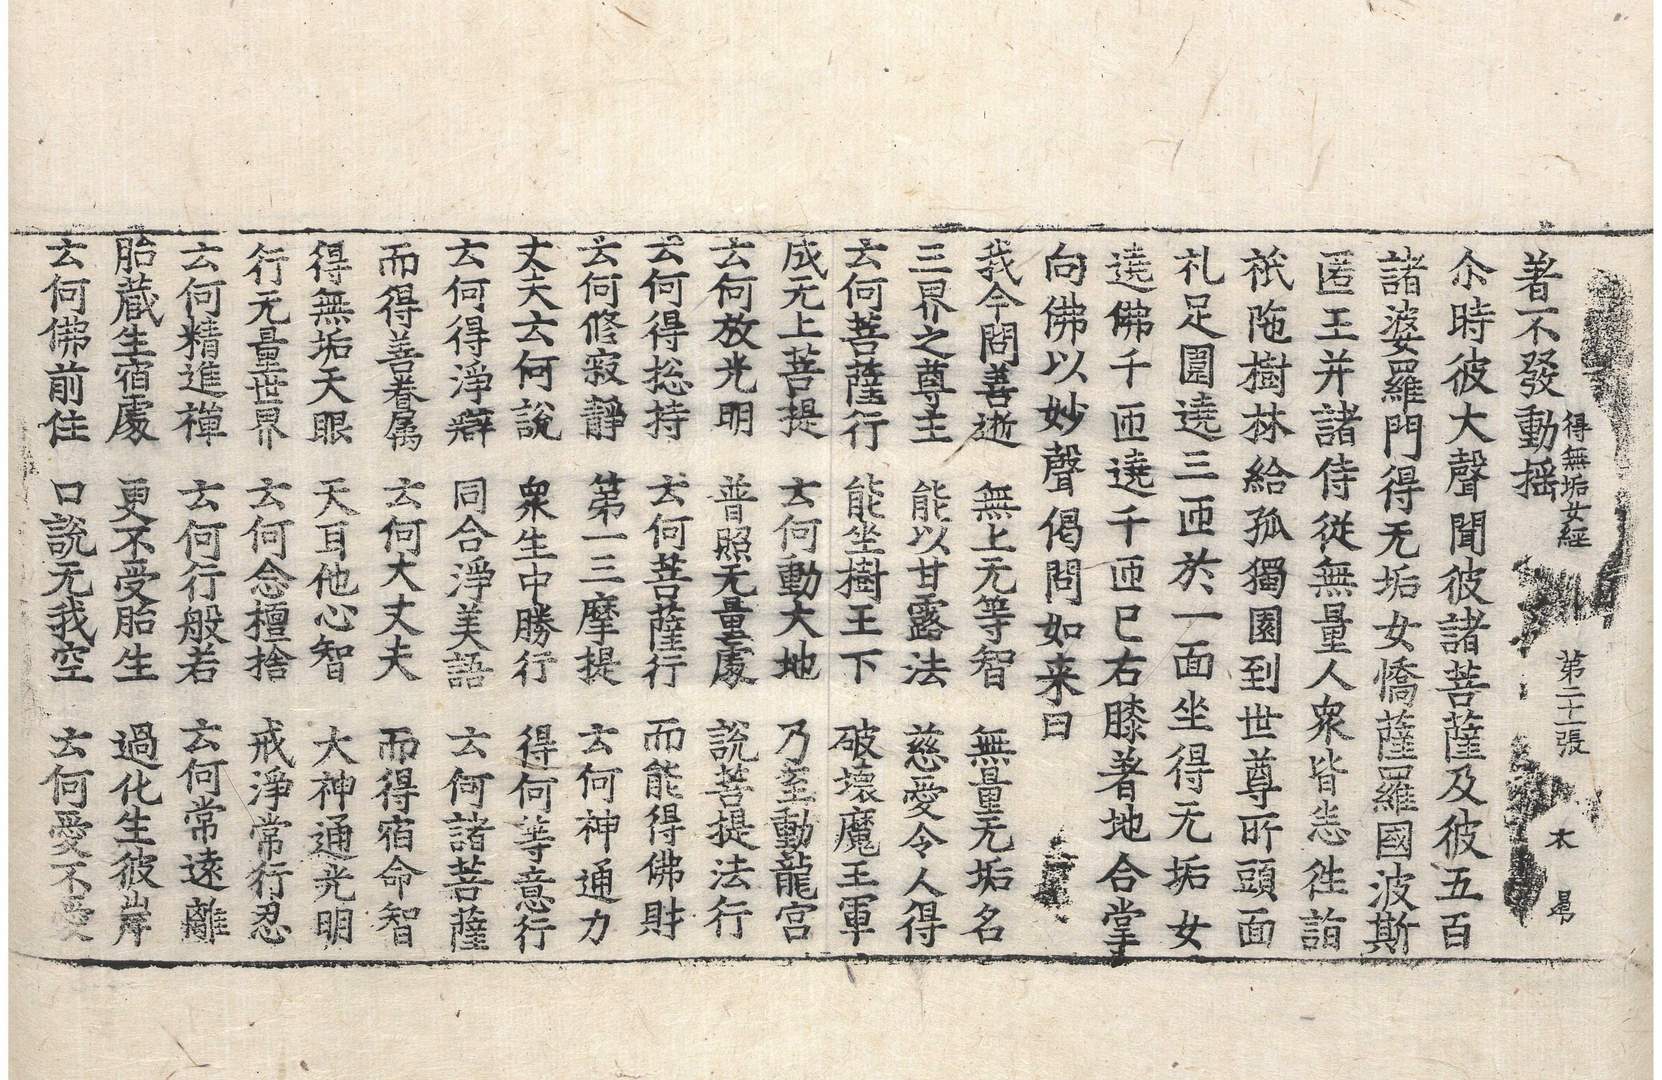 得無垢女經　第二十張　木　昻
著不發動揺
尒時彼大聲聞彼諸菩薩及彼五百
諸婆羅門得无垢女憍薩羅國波斯
匿王并諸侍從無量人衆皆悉徃詣
祇陁樹林給孤獨園到世尊所頭面
礼足圍遶三匝於一面坐得无垢女
遶佛千匝遶千匝已右膝著地合掌
向佛以妙聲偈問如来曰
我今問善逝　無上无等智　無量无垢名
三界之尊主　能以甘露法　慈愛令人得
云何菩薩行　能坐樹王下　破壞魔王軍
成无上菩提　云何動大地　乃至動龍宮
云何放光明　普照无量處　說菩提法行
云何得捴持　云何菩薩行　而能得佛財
云何修寂靜　第一三摩提　云何神通力
丈夫云何說　衆生中勝行　得何等意行
云何得淨辯　同合淨美語　云何諸菩薩
而得善眷属　云何大丈夫　而得宿命智
得無垢天眼　天耳他心智　大神通光明
行无量世界　云何念檀捨　戒淨常行忍
云何精進禪　云何行般若　云何常遠離
胎藏生宿處　更不受胎生　過化生彼岸
云何佛前住　口說无我空　云何愛不愛